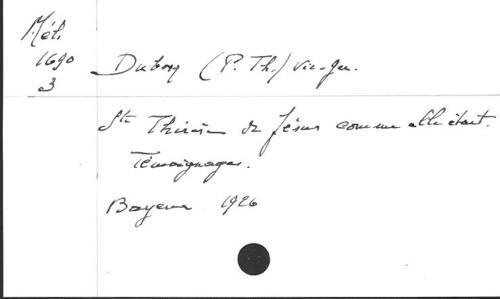 Mél.
1690
3
Dubosq (P. Th.) vic-gén.
Ste Thérèse de Jésus comme elle était.
Témoignages.
Bayeux 1926